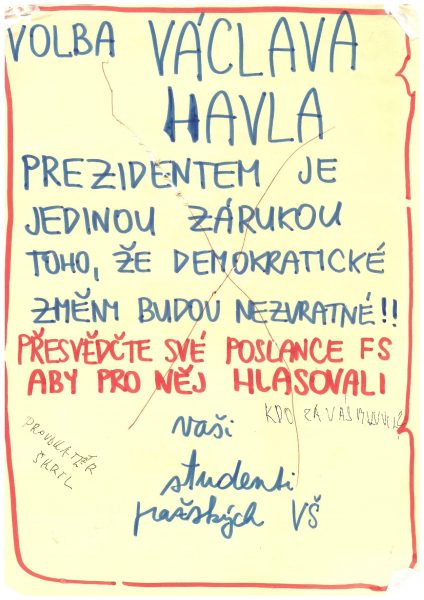 VOLBA VÁCLAVA
HAVLA
PREZIDENTEM JE
JEDINOU ZÁRUKOU
TOHO, ŽE DEMOKRATICKÉ
ZMĚNM BUDOU NEZVRATNÉ!!
PŘESVĚDČTE SVÉ POSLANCE FS
ABY PRO NĚJ HLASOVALI
KDO ZA VÁS MLUVIL?
vaši
studenti
pažských VŠ
ŠKRTL